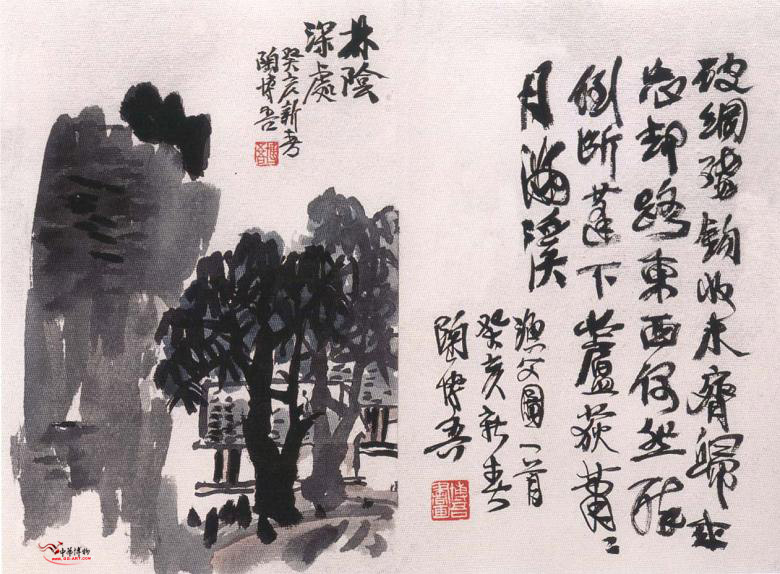 破網殘鉤收未齊歸來
忘却路東西偶然醉
倒斷蓬下蘆荻蕭〻
月滿溪
漁父圖一首
癸亥新春
陶博吾
林陰
深處
癸亥新春
陶博吾
中華博物